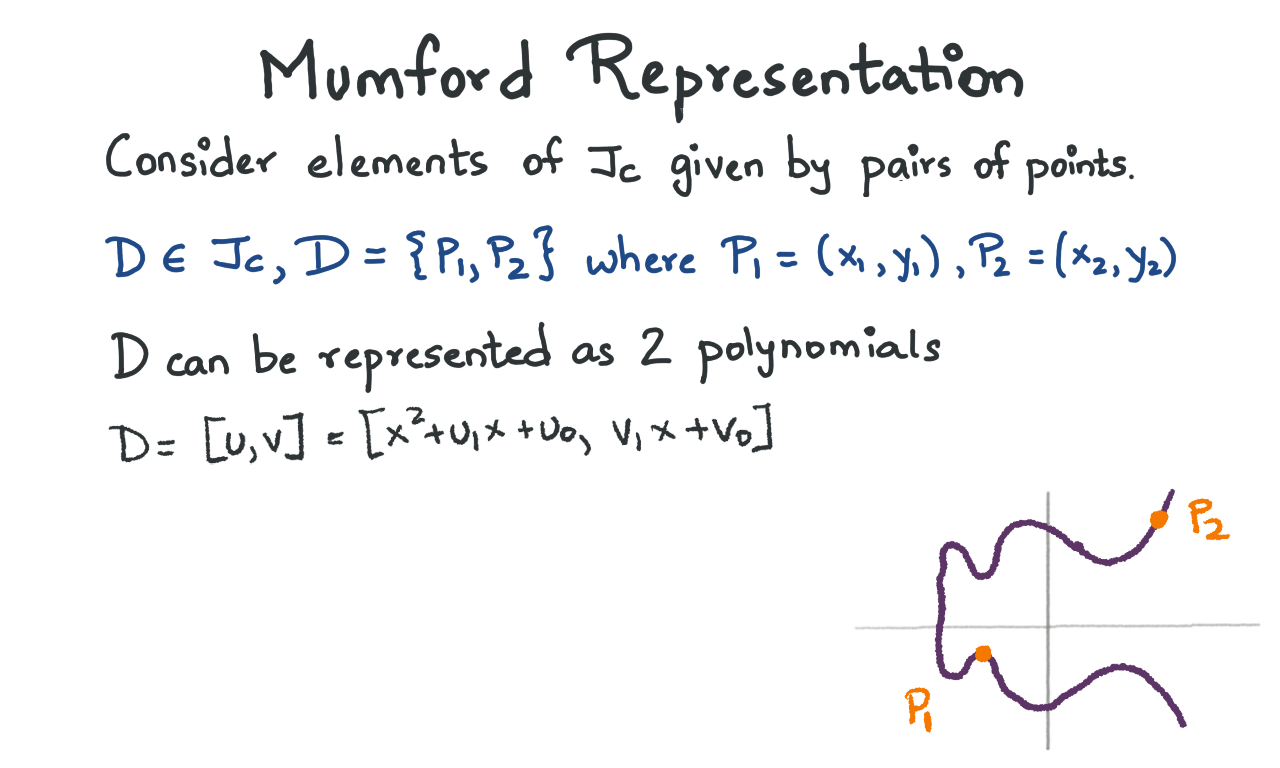 Mumford Representation
Consider elements of J_C given by pairs of points.
D ∈ J_C, D = {P₁, P₂} where P₁ = (x₁, y₁), P₂ = (x₂, y₂)
D can be represented as 2 polynomials
D = [u, v] = [x² + u₁x + u₀, v₁x + v₀]
P₂
P₁